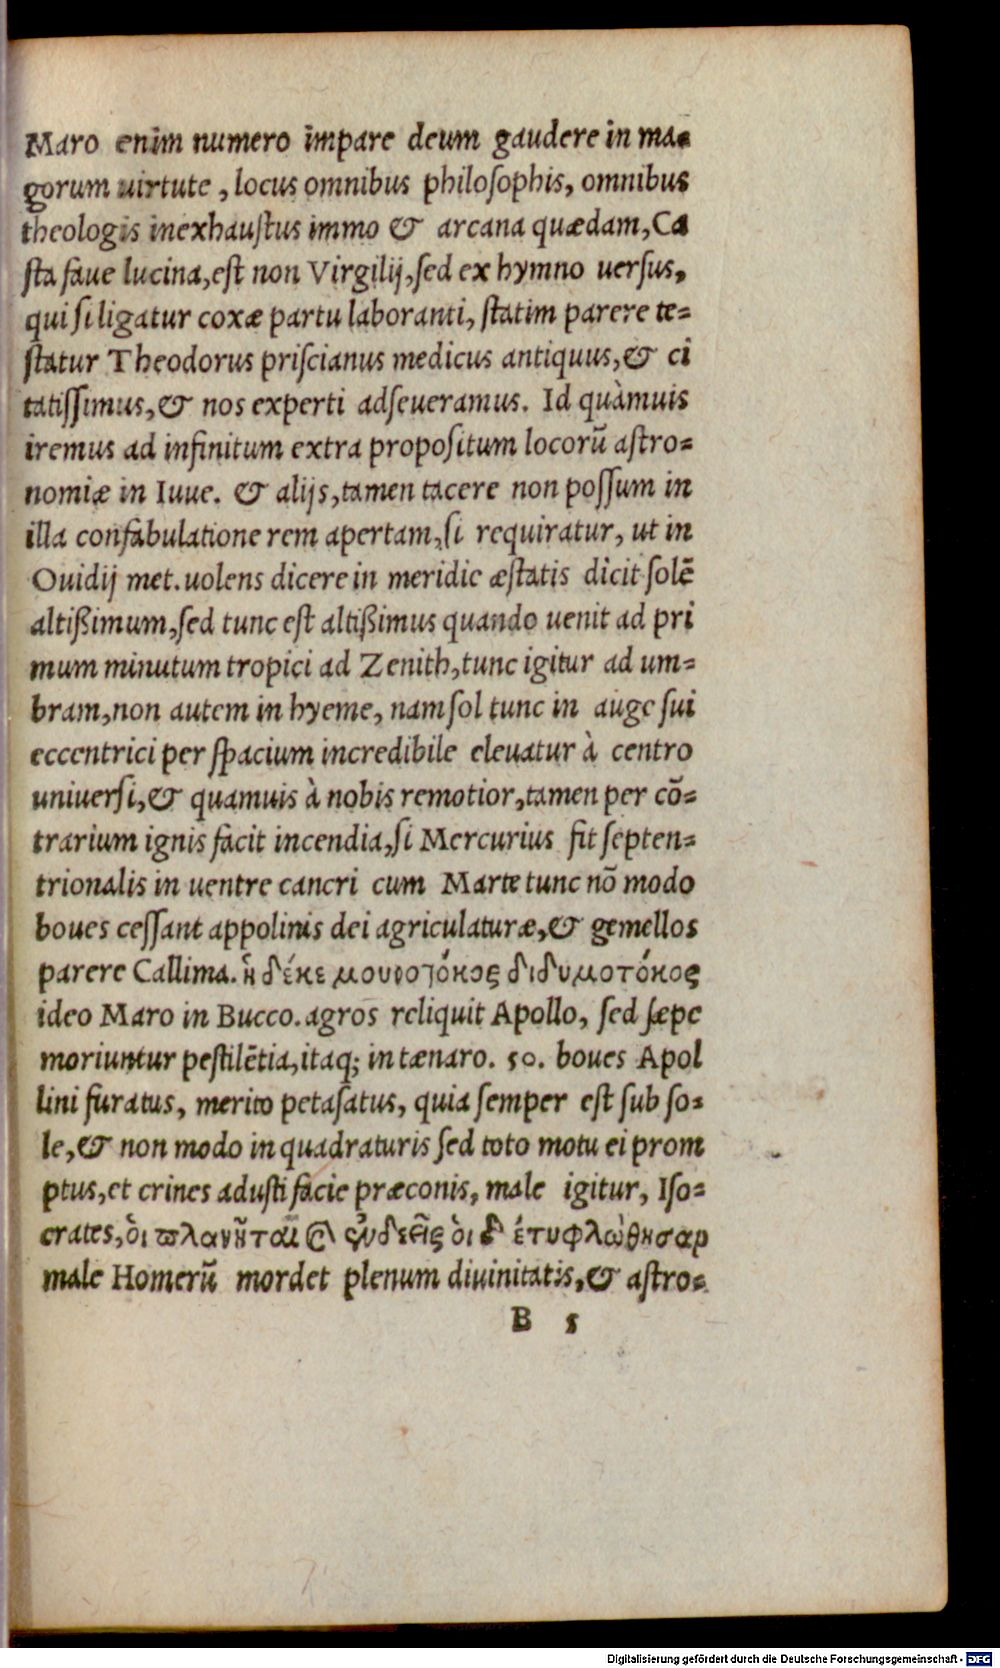 Maro enim numero impare deum gaudere in ma-
gorum uirtute, locus omnibus philosophis, omnibus
theologis inexhaustus immo & arcana quædam, Ca
sta faue lucina, est non Virgilij, sed ex hymno uersus,
qui si ligatur coxæ partu laboranti, statim parere te-
statur Theodorus priscianus medicus antiquus, & ci
tatissimus, & nos experti adseueramus. Id quàmuis
iremus ad infinitum extra propositum locorū astro-
nomiæ in Iuue. & alijs, tamen tacere non possum in
illa confabulatione rem apertam, si requiratur, ut in
Ouidij met. uolens dicere in meridie æstatis dicit solē
altißimum, sed tunc est altißimus quando uenit ad pri
mum minutum tropici ad Zenith, tunc igitur ad um-
bram, non autem in hyeme, nam sol tunc in auge sui
eccentrici per spacium incredibile eleuatur à centro
uniuersi, & quamuis à nobis remotior, tamen per cō-
trarium ignis facit incendia, si Mercurius fit septen-
trionalis in uentre cancri cum Marte tunc nō modo
boues cessant appolinis dei agriculaturæ, & gemellos
parere Callima. ἠ δέ κε μουνοτόκος διδυμοτόκος
ideo Maro in Bucco. agros reliquit Apollo, sed sæpe
moriuntur pestilētia, itaq; in tænaro. 50. boues Apol
lini furatus, merito petasatus, quia semper est sub so-
le, & non modo in quadraturis sed toto motu ei prom
ptus, et crines adusti facie præconis, male igitur, Iso-
crates, ὁι πλανῆται ὁι ἐτυφλώθησαν
male Homerū mordet plenum diuinitatis, & astro-
B 5
Digitalisierung gefördert durch die Deutsche Forschungsgemeinschaft - DFG